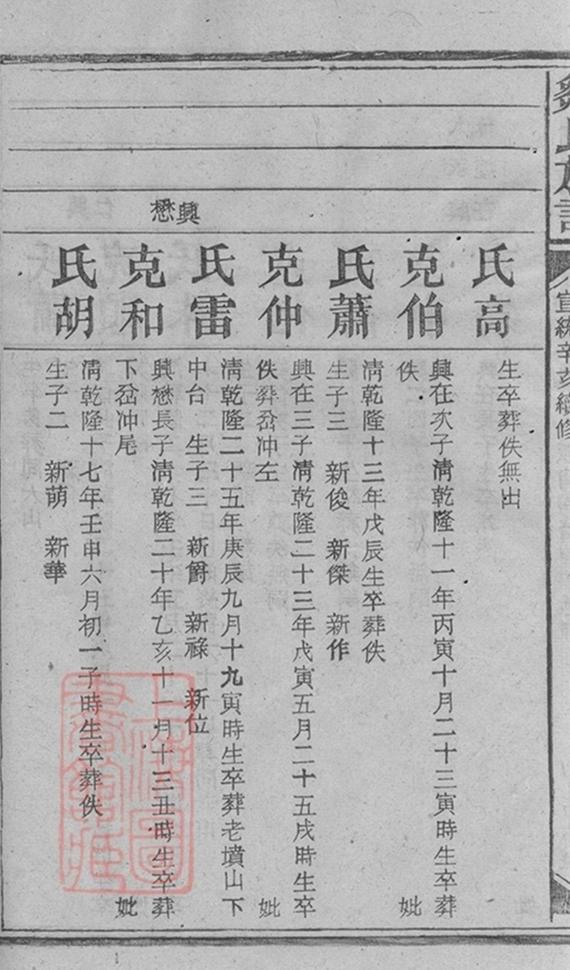 氏族譜
宣統辛亥續修
氏高
生卒葬佚無出
克伯
興在次子清乾隆十一年丙寅十月二十三寅時生卒葬
佚 妣
氏蕭
清乾隆十三年戊辰生卒葬佚
生子三 新俊 新傑 新作
克仲
興在三子清乾隆二十三年戊寅五月二十五戌時生卒
佚葬岔冲左 妣
氏雷
清乾隆二十五年庚辰九月十九寅時生卒葬老墳山下
中台 生子三 新爵 新祿 新位
興懋
克和
興懋長子清乾隆二十年乙亥十一月十三丑時生卒葬
下岔冲尾 妣
氏胡
清乾隆十七年壬申六月初一子時生卒葬佚
生子二 新萌 新華